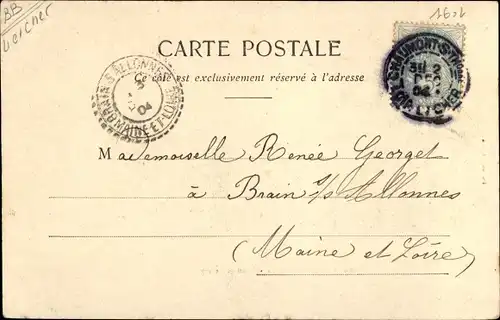 BB
Loircher
1602
CARTE POSTALE
Ce côté est exclusivement réservé à l'adresse
BRAIN-S-ALLONNES
2
04
MAINE-ET-LOIRE
CHAUMONT-S-THARONNE
2
DEC
04
LOIR-ET-CHER
Mademoiselle Renée Georget
à Brain s/s Allonnes
(Maine et Loire)